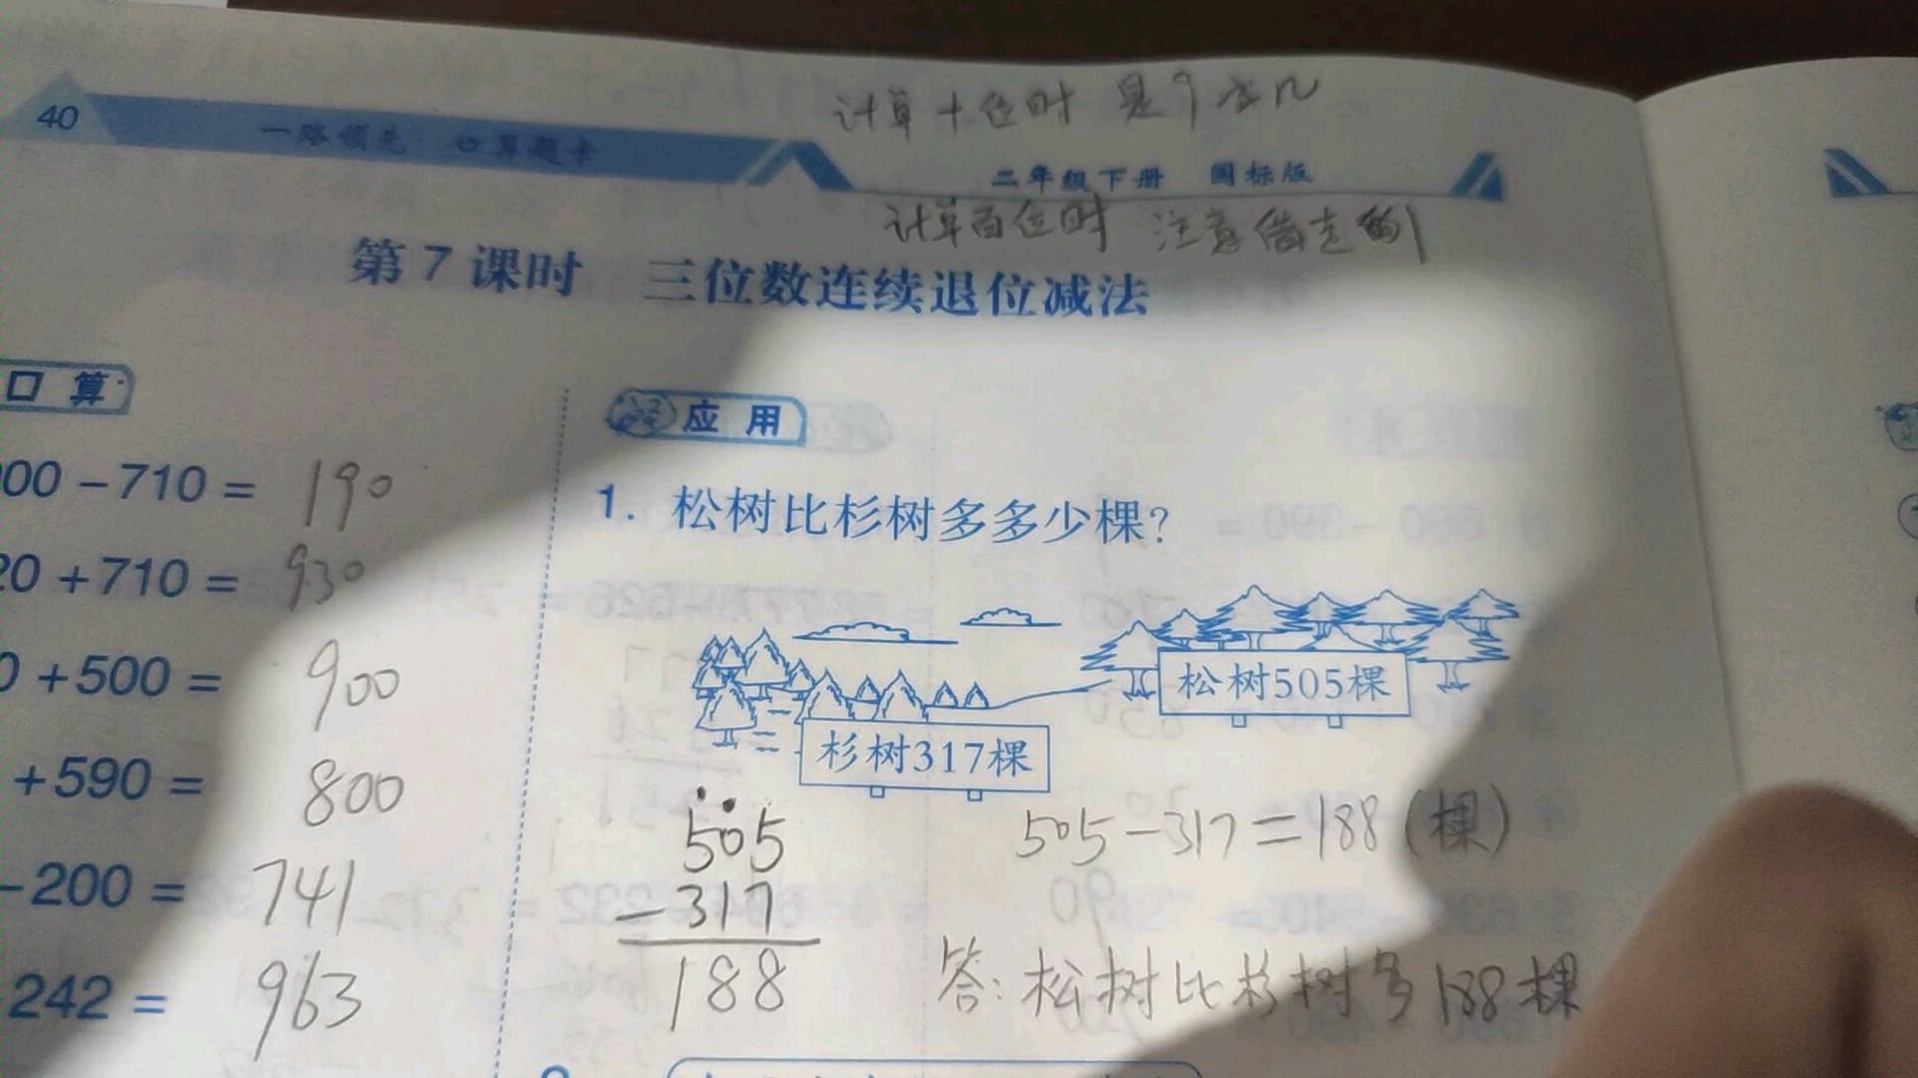 计算十位时 是9减几
40
一路领先 口算题卡
二年级下册 国标版
计算百位时 注意借走的1
第7课时 三位数连续退位减法
口算
00-710= 190
20+710= 930
0+500= 900
+590= 800
-200= 741
242= 963
应用
1. 松树比杉树多多少棵?
松树505棵
杉树317棵
505
-317
188
505-317=188(棵)
答:松树比杉树多188棵